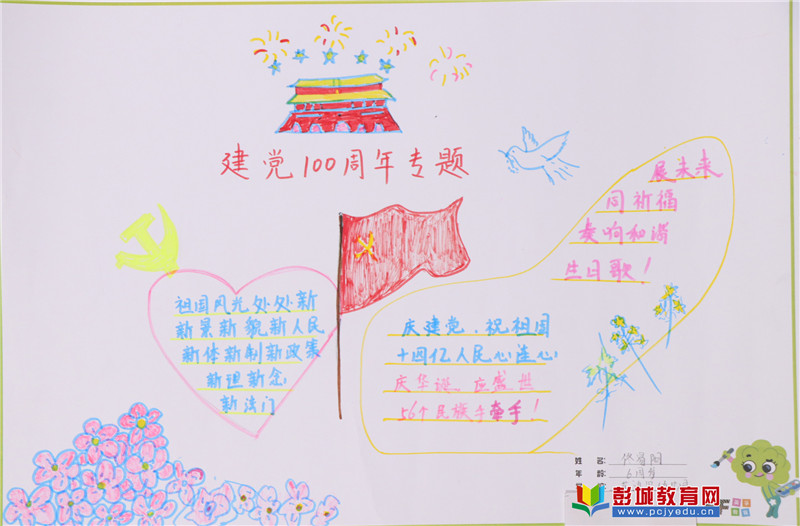 建党100周年专题
展未来
同祈福
奏响和谐
生日歌！
祖国风光处处新
新景新貌新人民
新体新制新政策
新理新念
新法门
庆建党，祝祖国
十四亿人民心连心
庆华诞，应盛世
56个民族手牵手！
姓 名：
年 龄：6周岁
彭城教育网
www.pcjyedu.cn